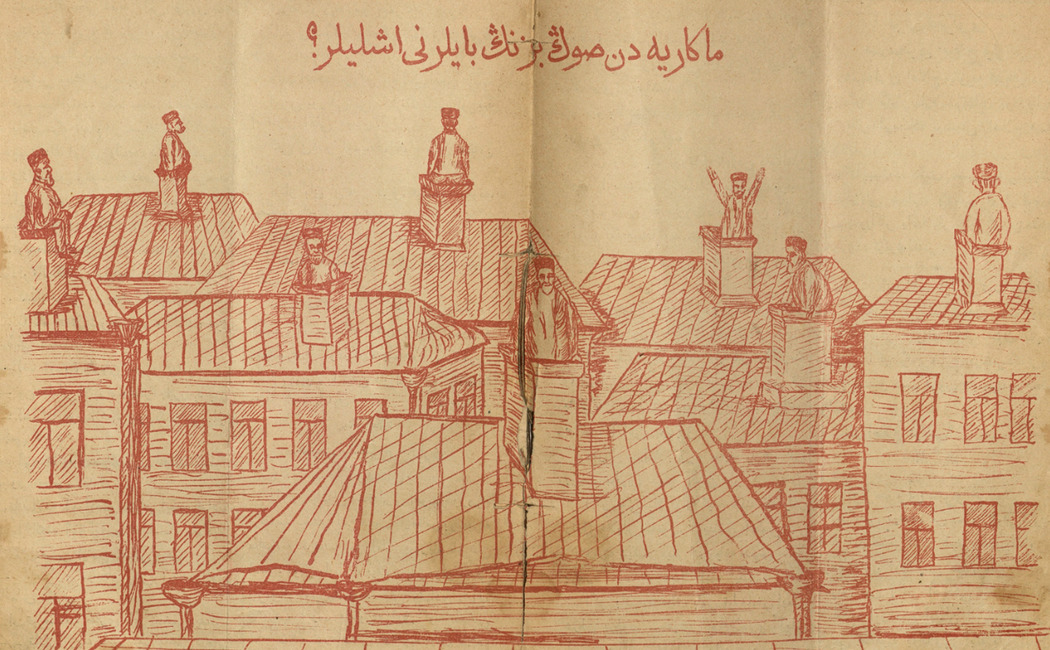 ماكاريه دن صوڭ بزنڭ بايلر نى اشليلر؟